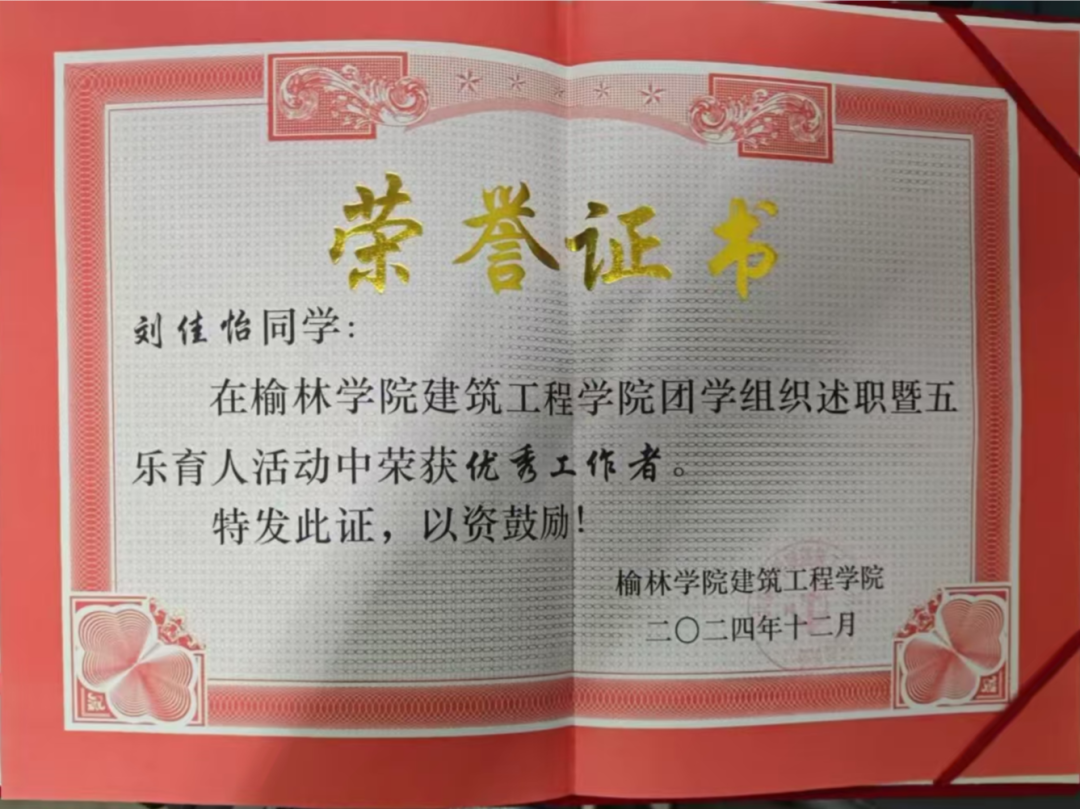 荣誉证书
刘佳怡同学：
在榆林学院建筑工程学院团学组织述职暨五
乐育人活动中荣获优秀工作者。
特发此证，以资鼓励！
榆林学院建筑工程学院
二〇二四年十二月